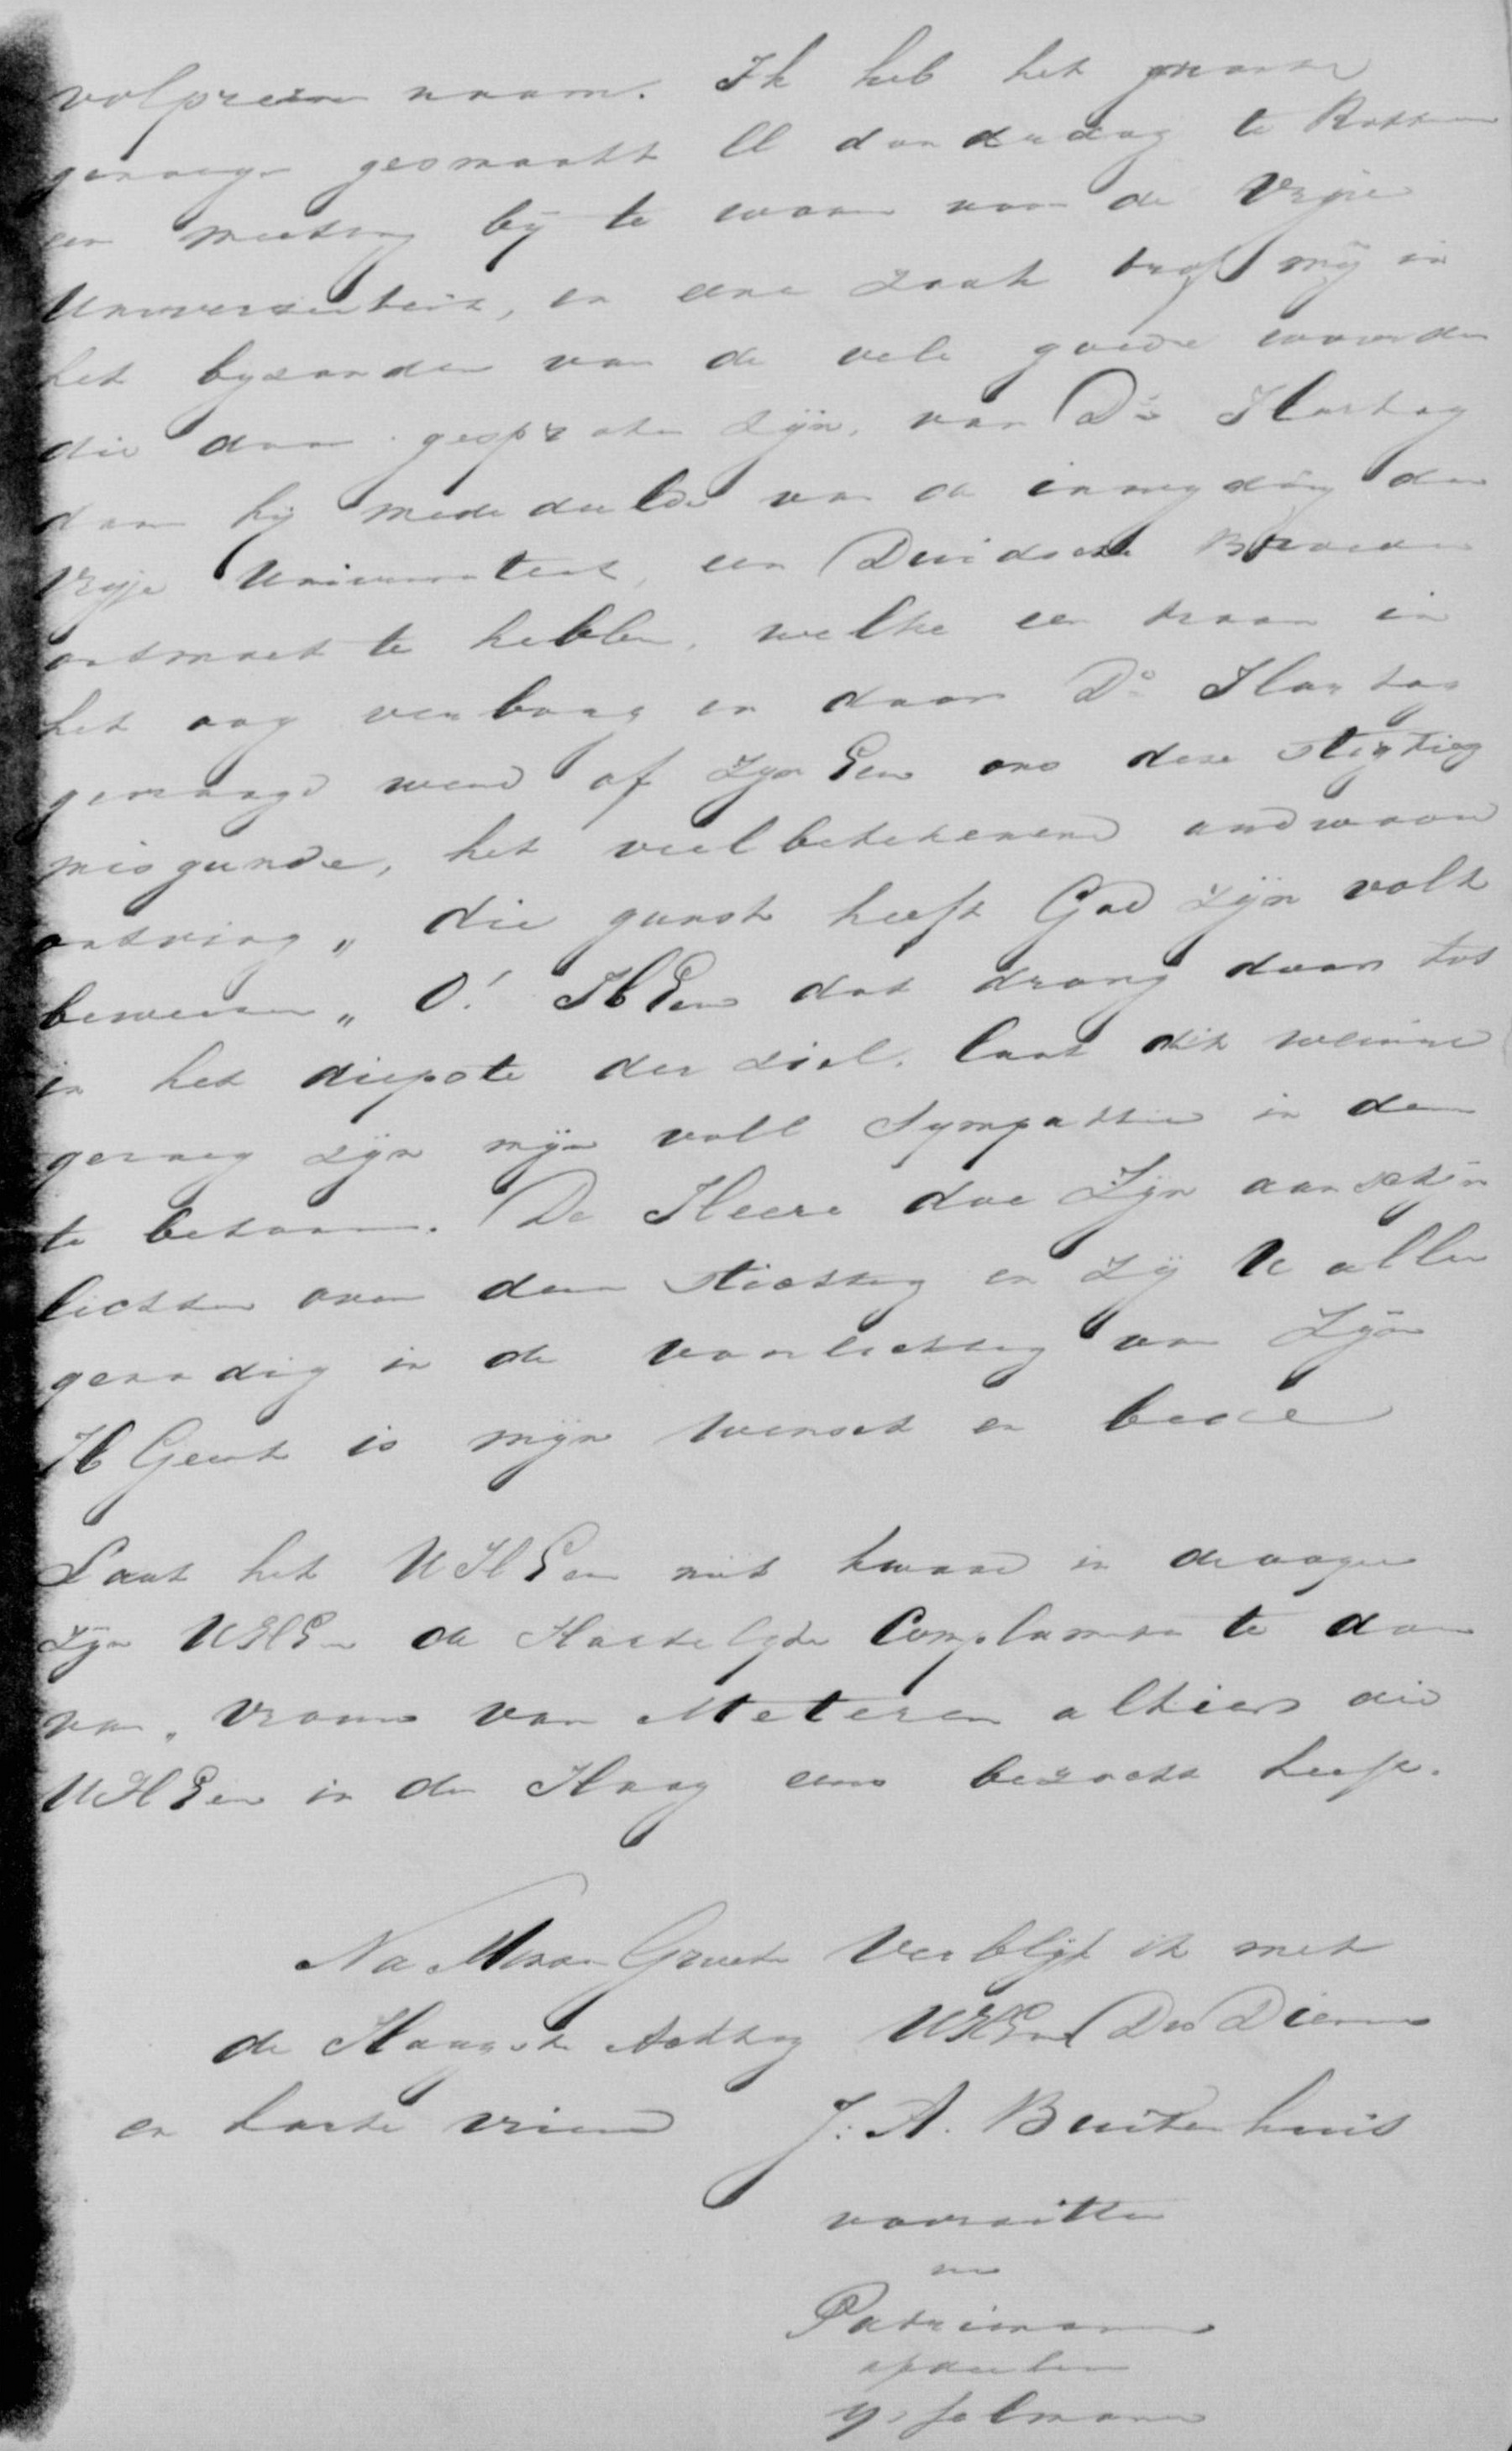 volprezen naam. Ik heb het groote
genoegen gesmaakt ll donderdag te Rotterdam
een meeting bij te wonen van de Vrije
Universiteit, en eene zaak trof mij in
het byzonder van de vele goede woorden
die daar gesproken zijn, van Ds Hartog
daar hij mededeelde van de inwyding der
Vrije Universiteit, een Duidsche Broeder
ontmoet te hebben, welke een traan in
het oog verborg en door Ds Hartog
gevraagd werd of Zyn Eerw ons deze stigting
misgunde, het veelbetekenend andwoord
ontving „ die gunst heeft God zijn volk
bewezen „ O! HEerw dat drong door tot
in het diepste der ziel. laat dit weinige
genoeg zijn mijn volle Sympathie in deze
te betoonen. De Heere doe Zijn aanschijn
lichten over deze stichting en zij U allen
genadig in de voorlichting van Zijn
H Geest is mijn wensch en bede
Laat het UHEerw niet kwaad in de oogen
zijn UHEerw de Hartelykste Complimenten te doen
van vrouw van Meteren alhier die
UHEerw in den Haag eens bezocht heeft.
Na Groete Verblijf ik met
de Hoogste Achting UHEerw Dw Dienaar
en harte vriend J. A. Buitenhuis
voorzitter
van
Patrimonium
afdeeling
Ysselmonde